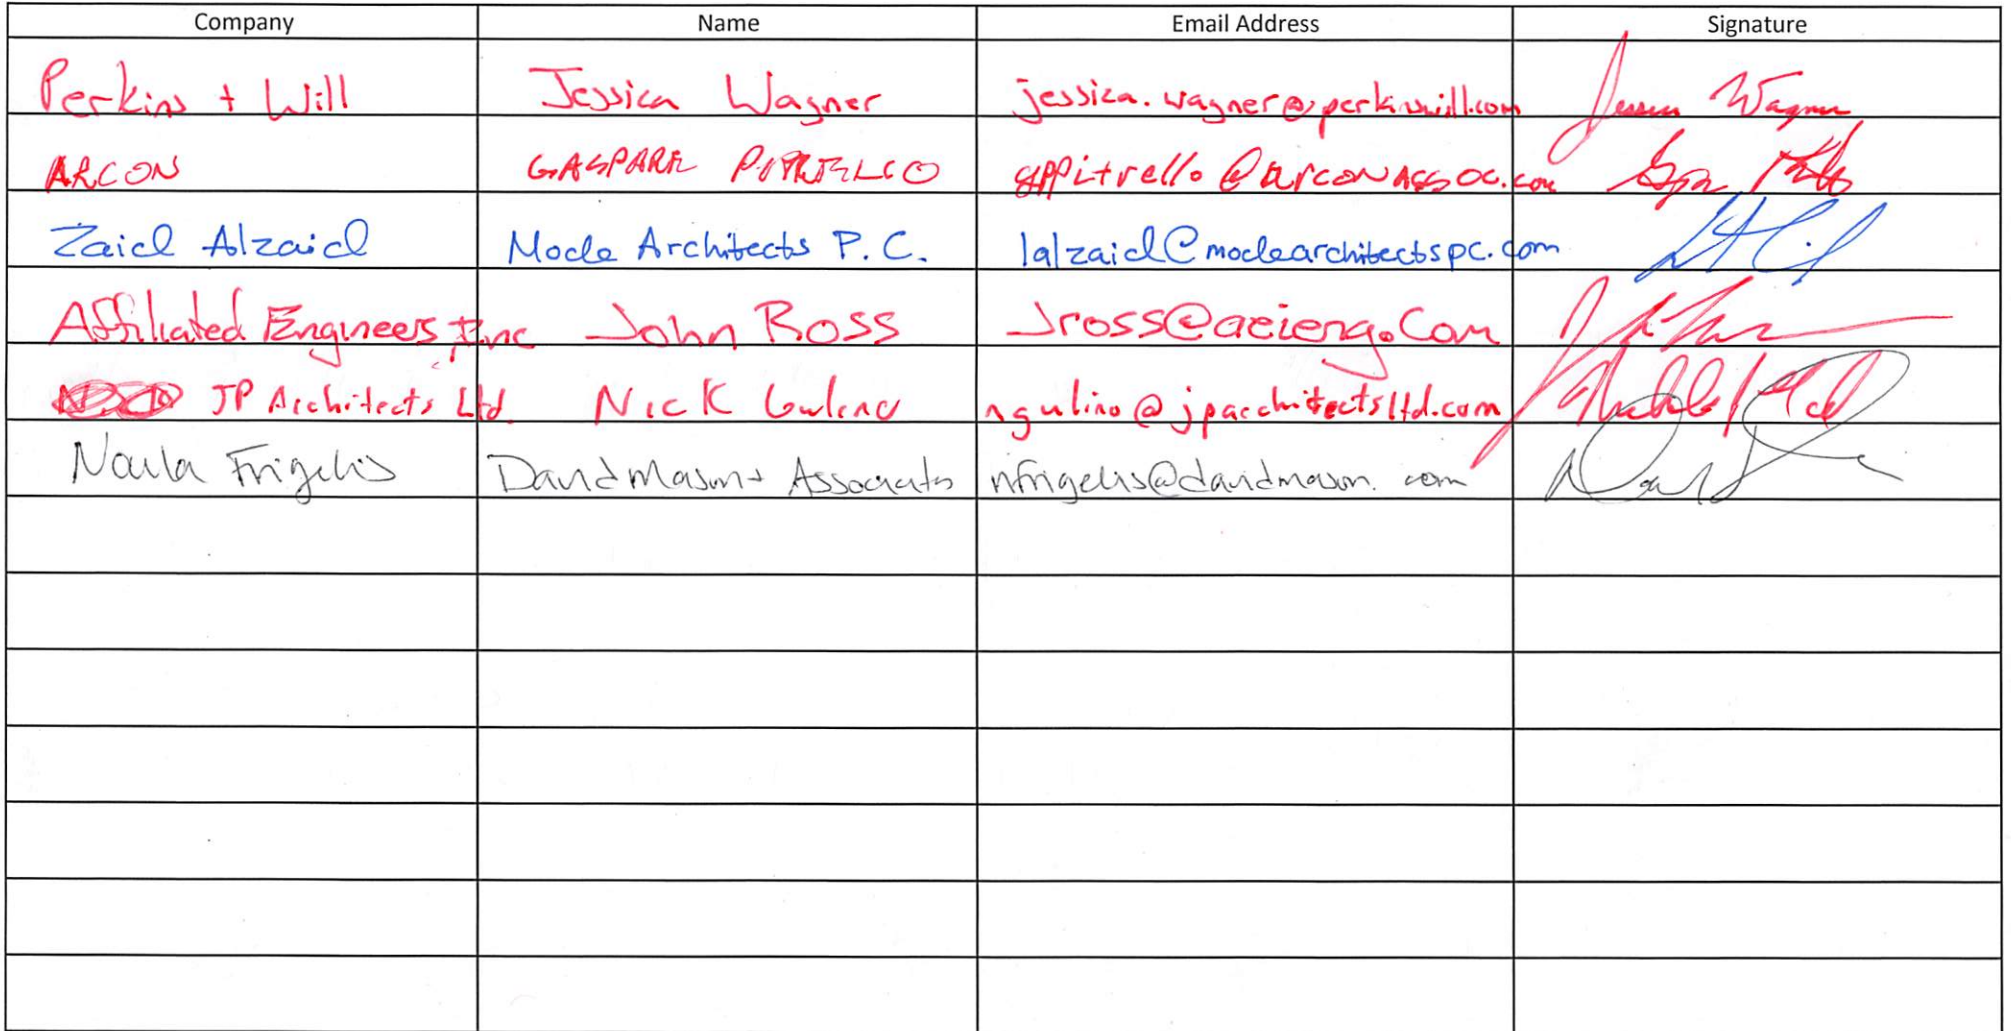 Company Name Email Address Signature
Perkins + Will Jessica Wagner jessica.wagner@perkinswill.com Jessica Wagner
ARCON GASPARE PITRELLO gppitrello@arconassoc.com
Zaid Alzaid Mode Architects P.C. lalzaid@modearchitectspc.com
Affiliated Engineers Inc John Ross Jross@aeieng.com
JP Architects Ltd. Nick Gulino ngulino@jparchitectsltd.com
Noula Frigelis David Mason + Associates nfrigelis@davidmason.com